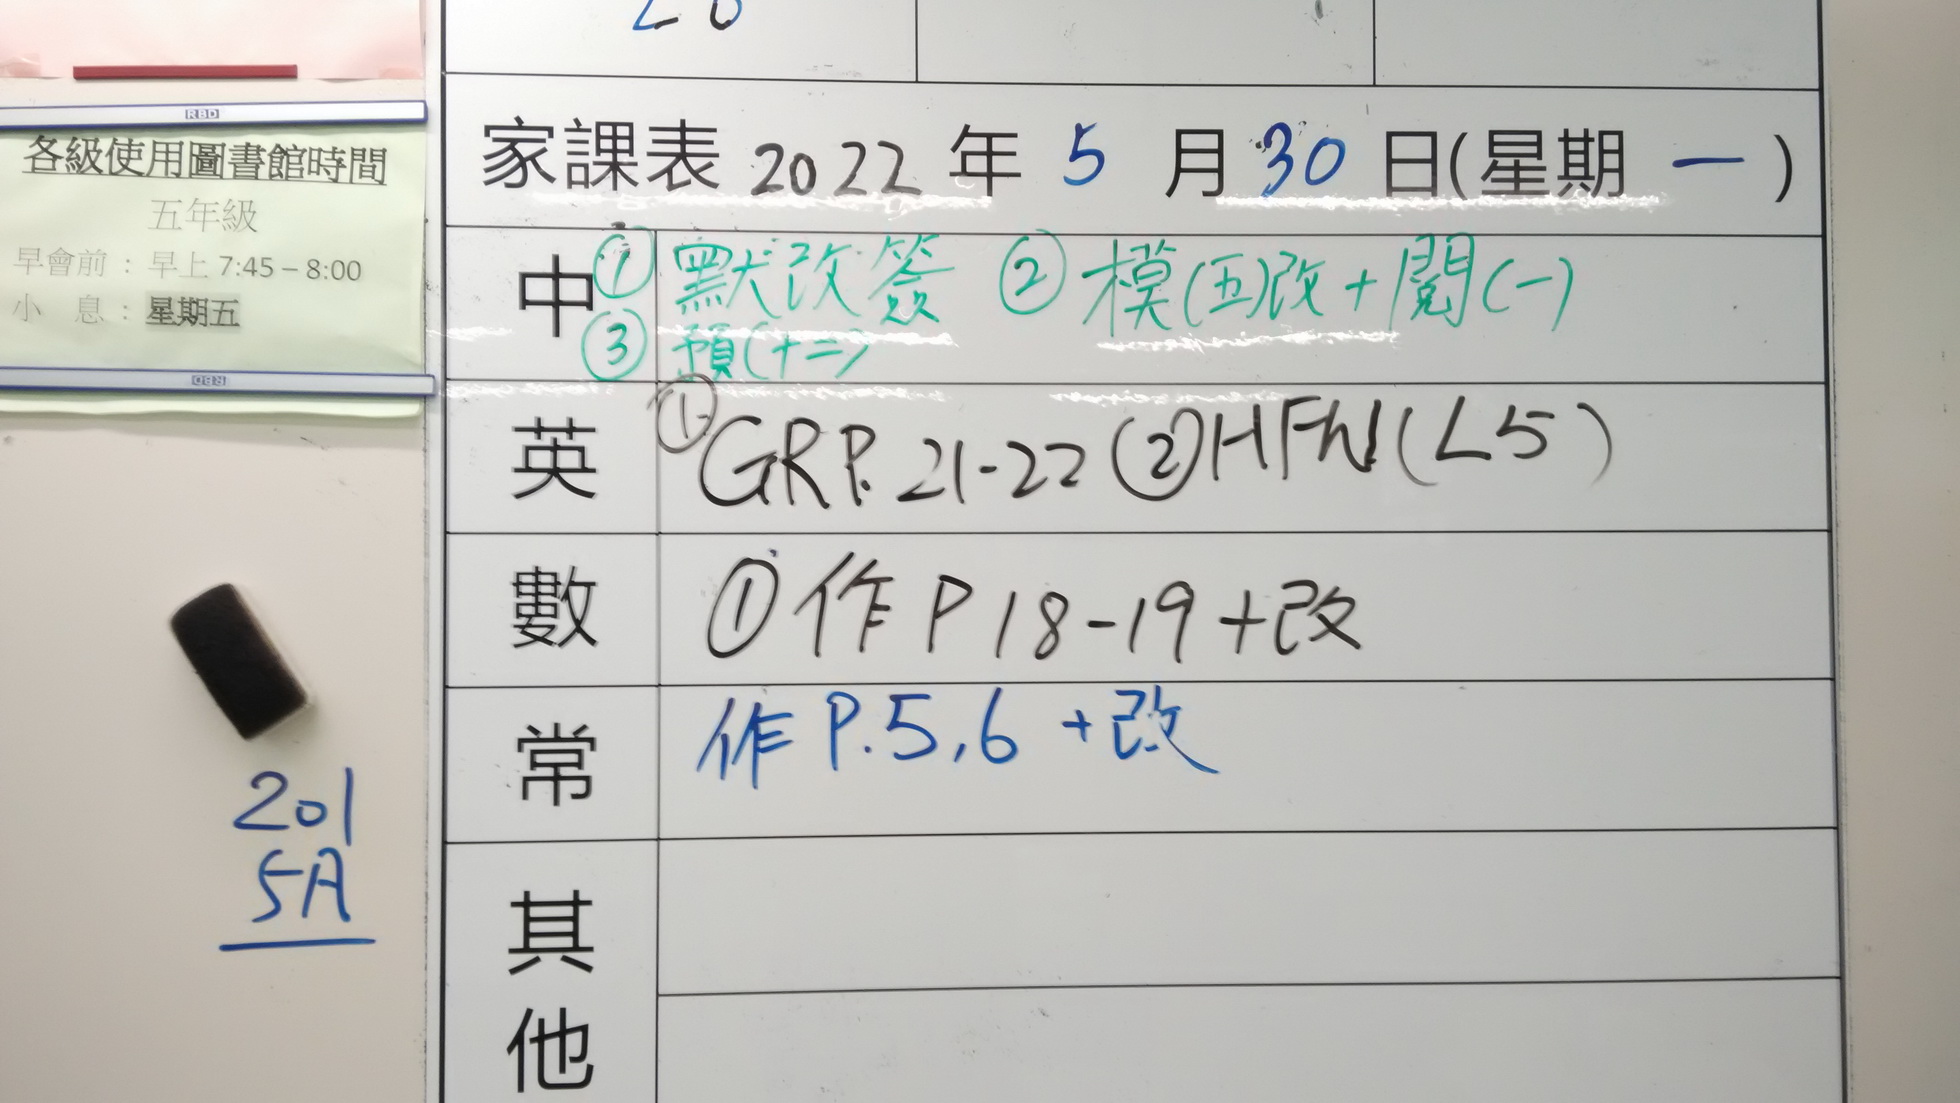 RBD
各級使用圖書館時間
五年級
早會前：早上 7:45 – 8:00
小 息：星期五
RBD
201
5A
家課表 2022 年 5 月 30 日(星期 一 )
中 ① 默改簽 ② 模(五)改+閱(一)
③ 預(十二)
英 ① GRP. 21-22 ② HFW (L5)
數 ① 作 P 18-19 +改
常 作 P.5,6 +改
其
他